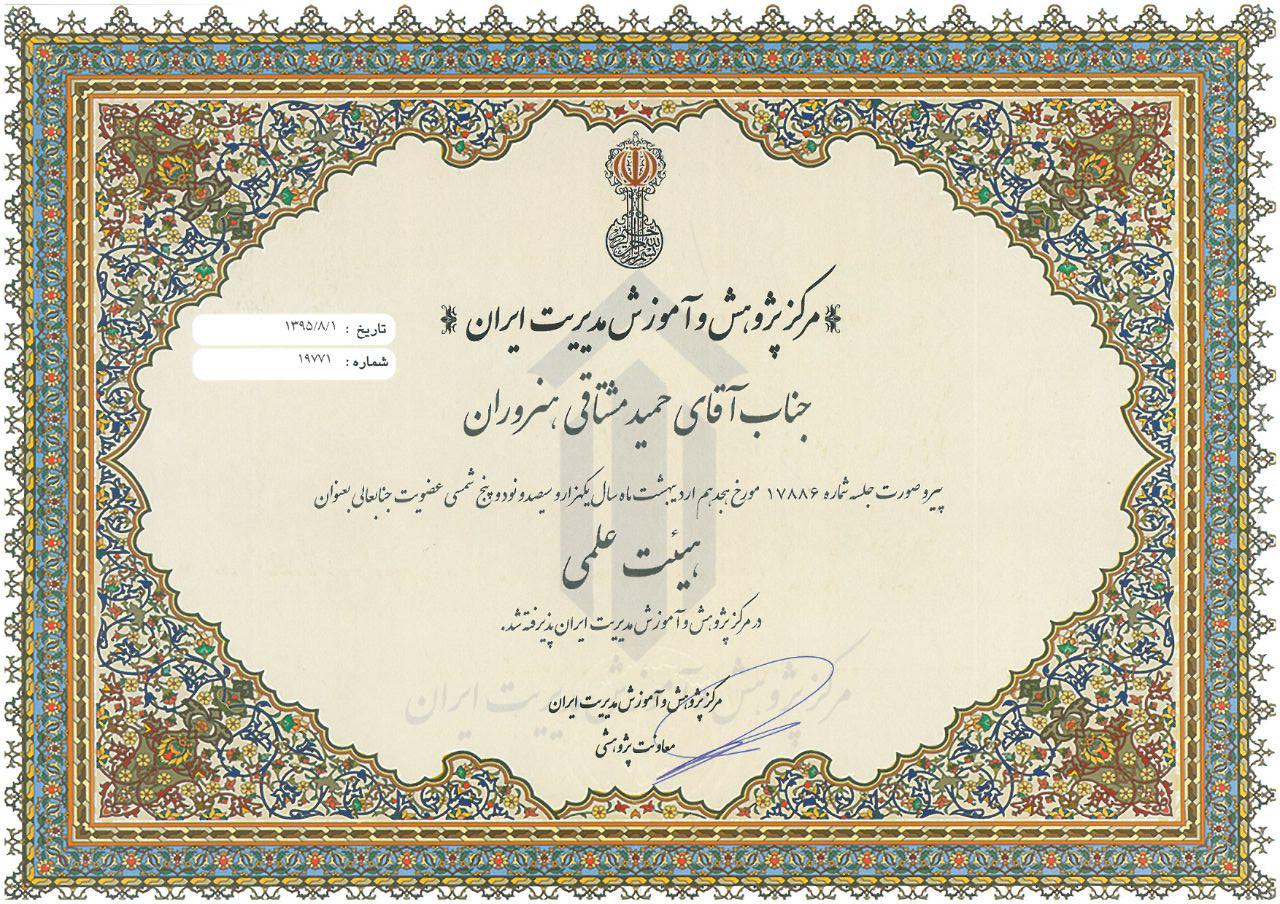 مرکز پژوهش و آموزش مدیریت ایران
تاریخ : ۱۳۹۵/۸/۱
شماره : ۱۹۷۷۱
جناب آقای حمید مشتاقی هنروران
پیرو صورت جلسه شماره ۱۷۸۸۶ مورخ هجدهم اردیبهشت ماه سال یکهزار و سیصد و نود و پنج شمسی عضویت جنابعالی بعنوان
هیئت علمی
در مرکز پژوهش و آموزش مدیریت ایران پذیرفته شد.
مرکز پژوهش و آموزش مدیریت ایران
مرکز پژوهش و آموزش مدیریت ایران
معاونت پژوهشی